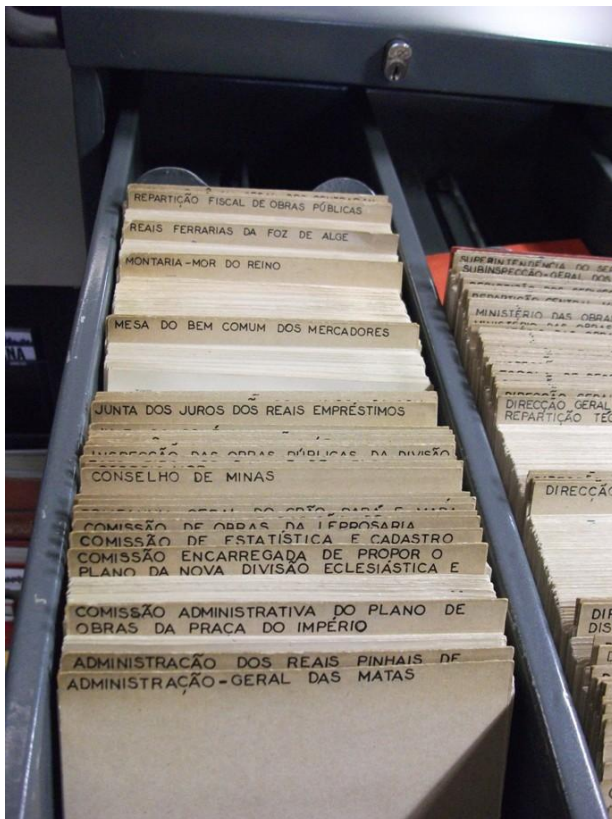 REPARTIÇÃO FISCAL DE OBRAS PÚBLICAS
REAIS FERRARIAS DA FOZ DE ALGE
MONTARIA-MOR DO REINO
MESA DO BEM COMUM DOS MERCADORES
JUNTA DOS JUROS DOS REAIS EMPRÉSTIMOS
INSPECÇÃO DAS OBRAS PÚBLICAS DA DIVISÃO
CONSELHO DE MINAS
GERAL DO GRÃO PARÁ E
COMISSÃO DE OBRAS DA LEPROSARIA
COMISSÃO DE ESTATÍSTICA E CADASTRO
COMISSÃO ENCARREGADA DE PROPOR O
PLANO DA NOVA DIVISÃO ECLESIÁSTICA E
COMISSÃO ADMINISTRATIVA DO PLANO DE
OBRAS DA PRAÇA DO IMPÉRIO
ADMINISTRAÇÃO DOS REAIS PINHAIS DE
ADMINISTRAÇÃO-GERAL DAS MATAS
SUPERINTENDÊNCIA DO
SUBINSPECÇÃO-GERAL DOS
REPARTIÇÃO CENTRAL
MINISTÉRIO DAS OBRA
DIRECÇÃO GERAL
REPARTIÇÃO TEC
DIRECÇÃO
DIR
DIS
NA